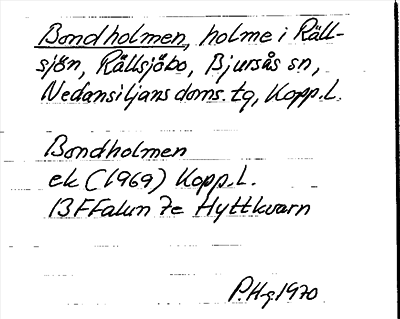 Bondholmen, holme i Räll-
sjön, Rällsjöbo, Bjursås sn,
Nedansiljans doms.tg, Kopp.L.
Bondholmen
ek (1969) Kopp.L.
13F Falun 7e Hyttkvarn
P.Hg 1970